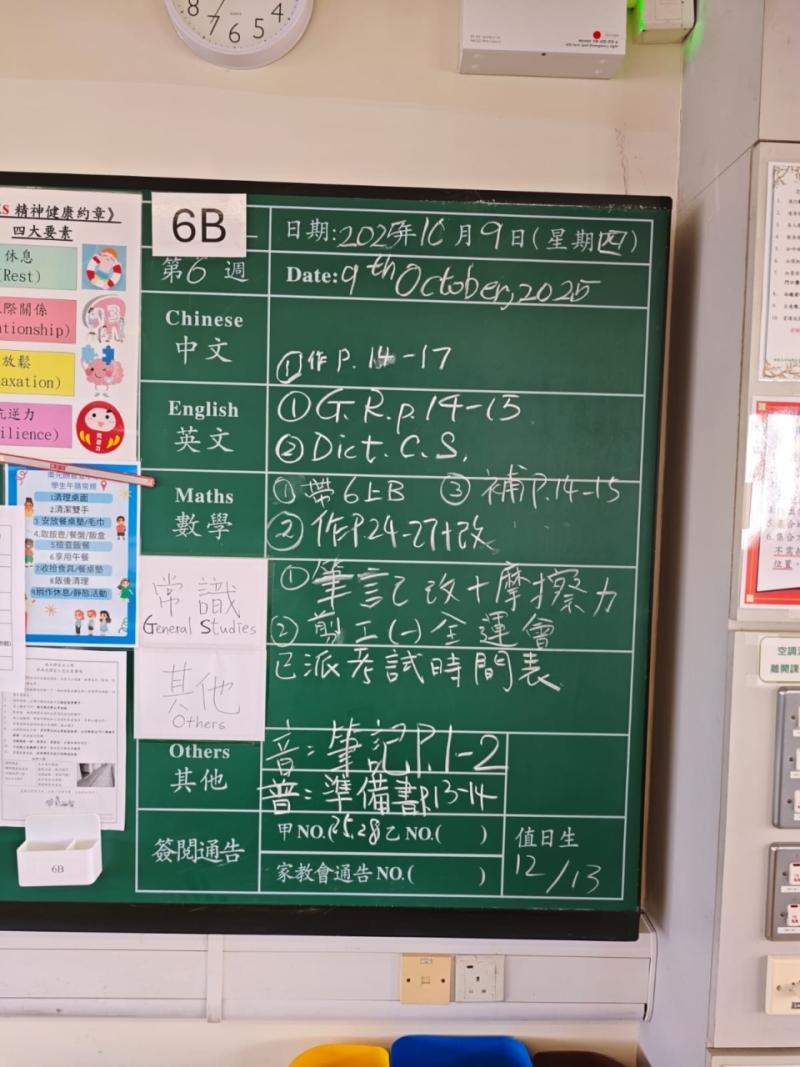 8 7 6 5 4
S 精神健康約章》
四大要素
休息
(Rest)
際關係
tionship)
放鬆
axation)
抗逆力
ilience)
學生午膳常規
1清理桌面
2.清潔雙手
3.安放餐桌墊/毛巾
4.取飯壺/餐盤/飯盒
5檢查飯餐
6.享用午餐
7.收拾食具/餐桌墊
8飯後清理
9.稍作休息/靜態活動
6B
6B
日期:2025年10月9日(星期四)
第6週
Date:9th October,2025
Chinese
中文
①作P.14-17
English
英文
①G.R.p.14-15
②Dict.C.S.
Maths
數學
①帶6上B ③補P.14-15
②作P.24-27+改
常識
General Studies
①筆記改+摩擦力
②剪工(一)全運會
其他
Others
已派考試時間表
Others
其他
音:筆記P.1-2
普:準備書P.13-14
簽閱通告
甲NO.(25,28乙NO.( )
家教會通告NO.( )
值日生
12/13
空調
離開課